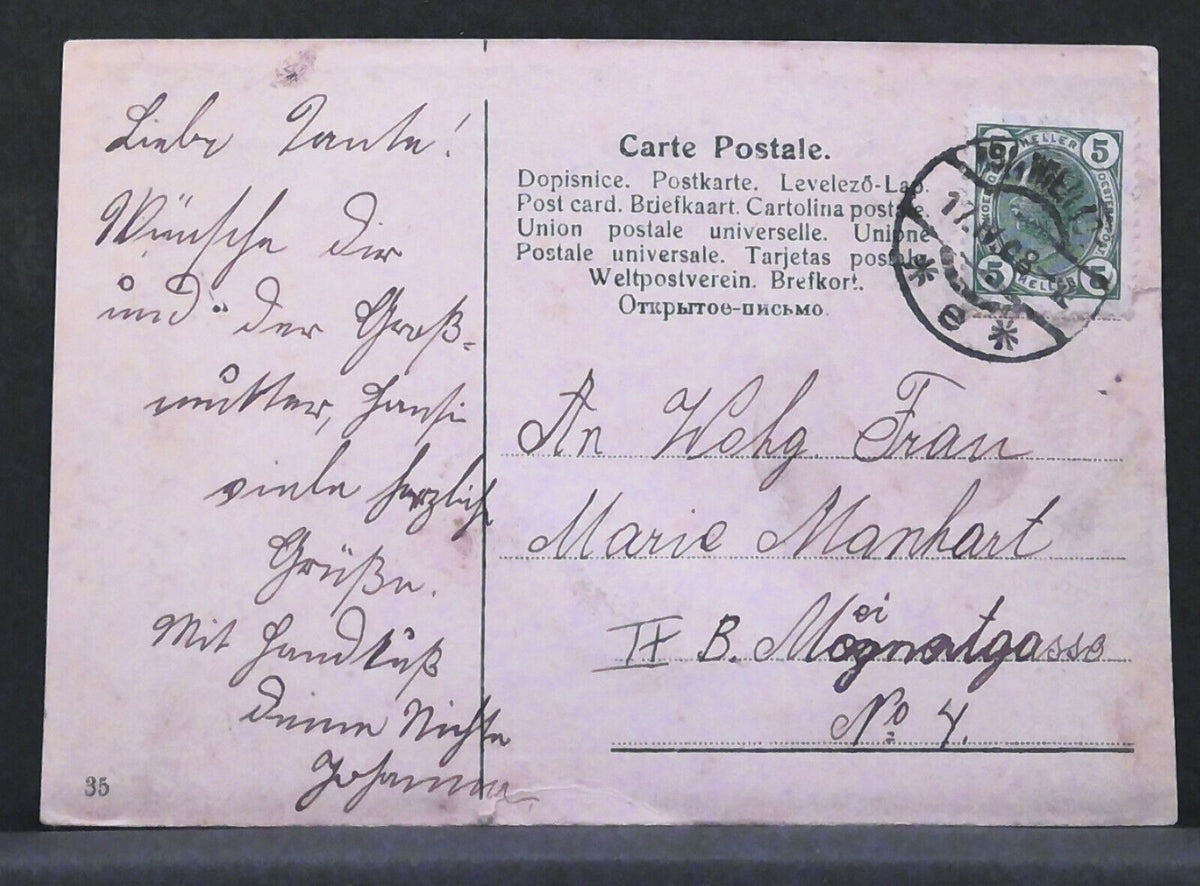 Liebe Tante!
Wünsche Dir
und der Groß-
mutter, Hansi
viele herzliche
Grüße.
Mit Handkuß
Deine Nichte
Johanna
35
Carte Postale.
Dopisnice. Postkarte. Levelező-Lap.
Post card. Briefkaart. Cartolina postale.
Union postale universelle. Unione
Postale universale. Tarjetas postale.
Weltpostverein. Brefkort.
Открытое-письмо.
5 HELLER 5
5 HELLER 5
9/1 WIEN
17. 08
* e *
An Wohg. Frau
Marie Manhart
IX B.
No 4.